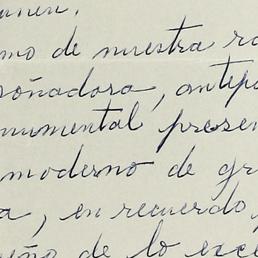 mo de nuestra ra
soñadora, antip
numental presen
moderno de gr
a, en recuerdo
eño de lo exce